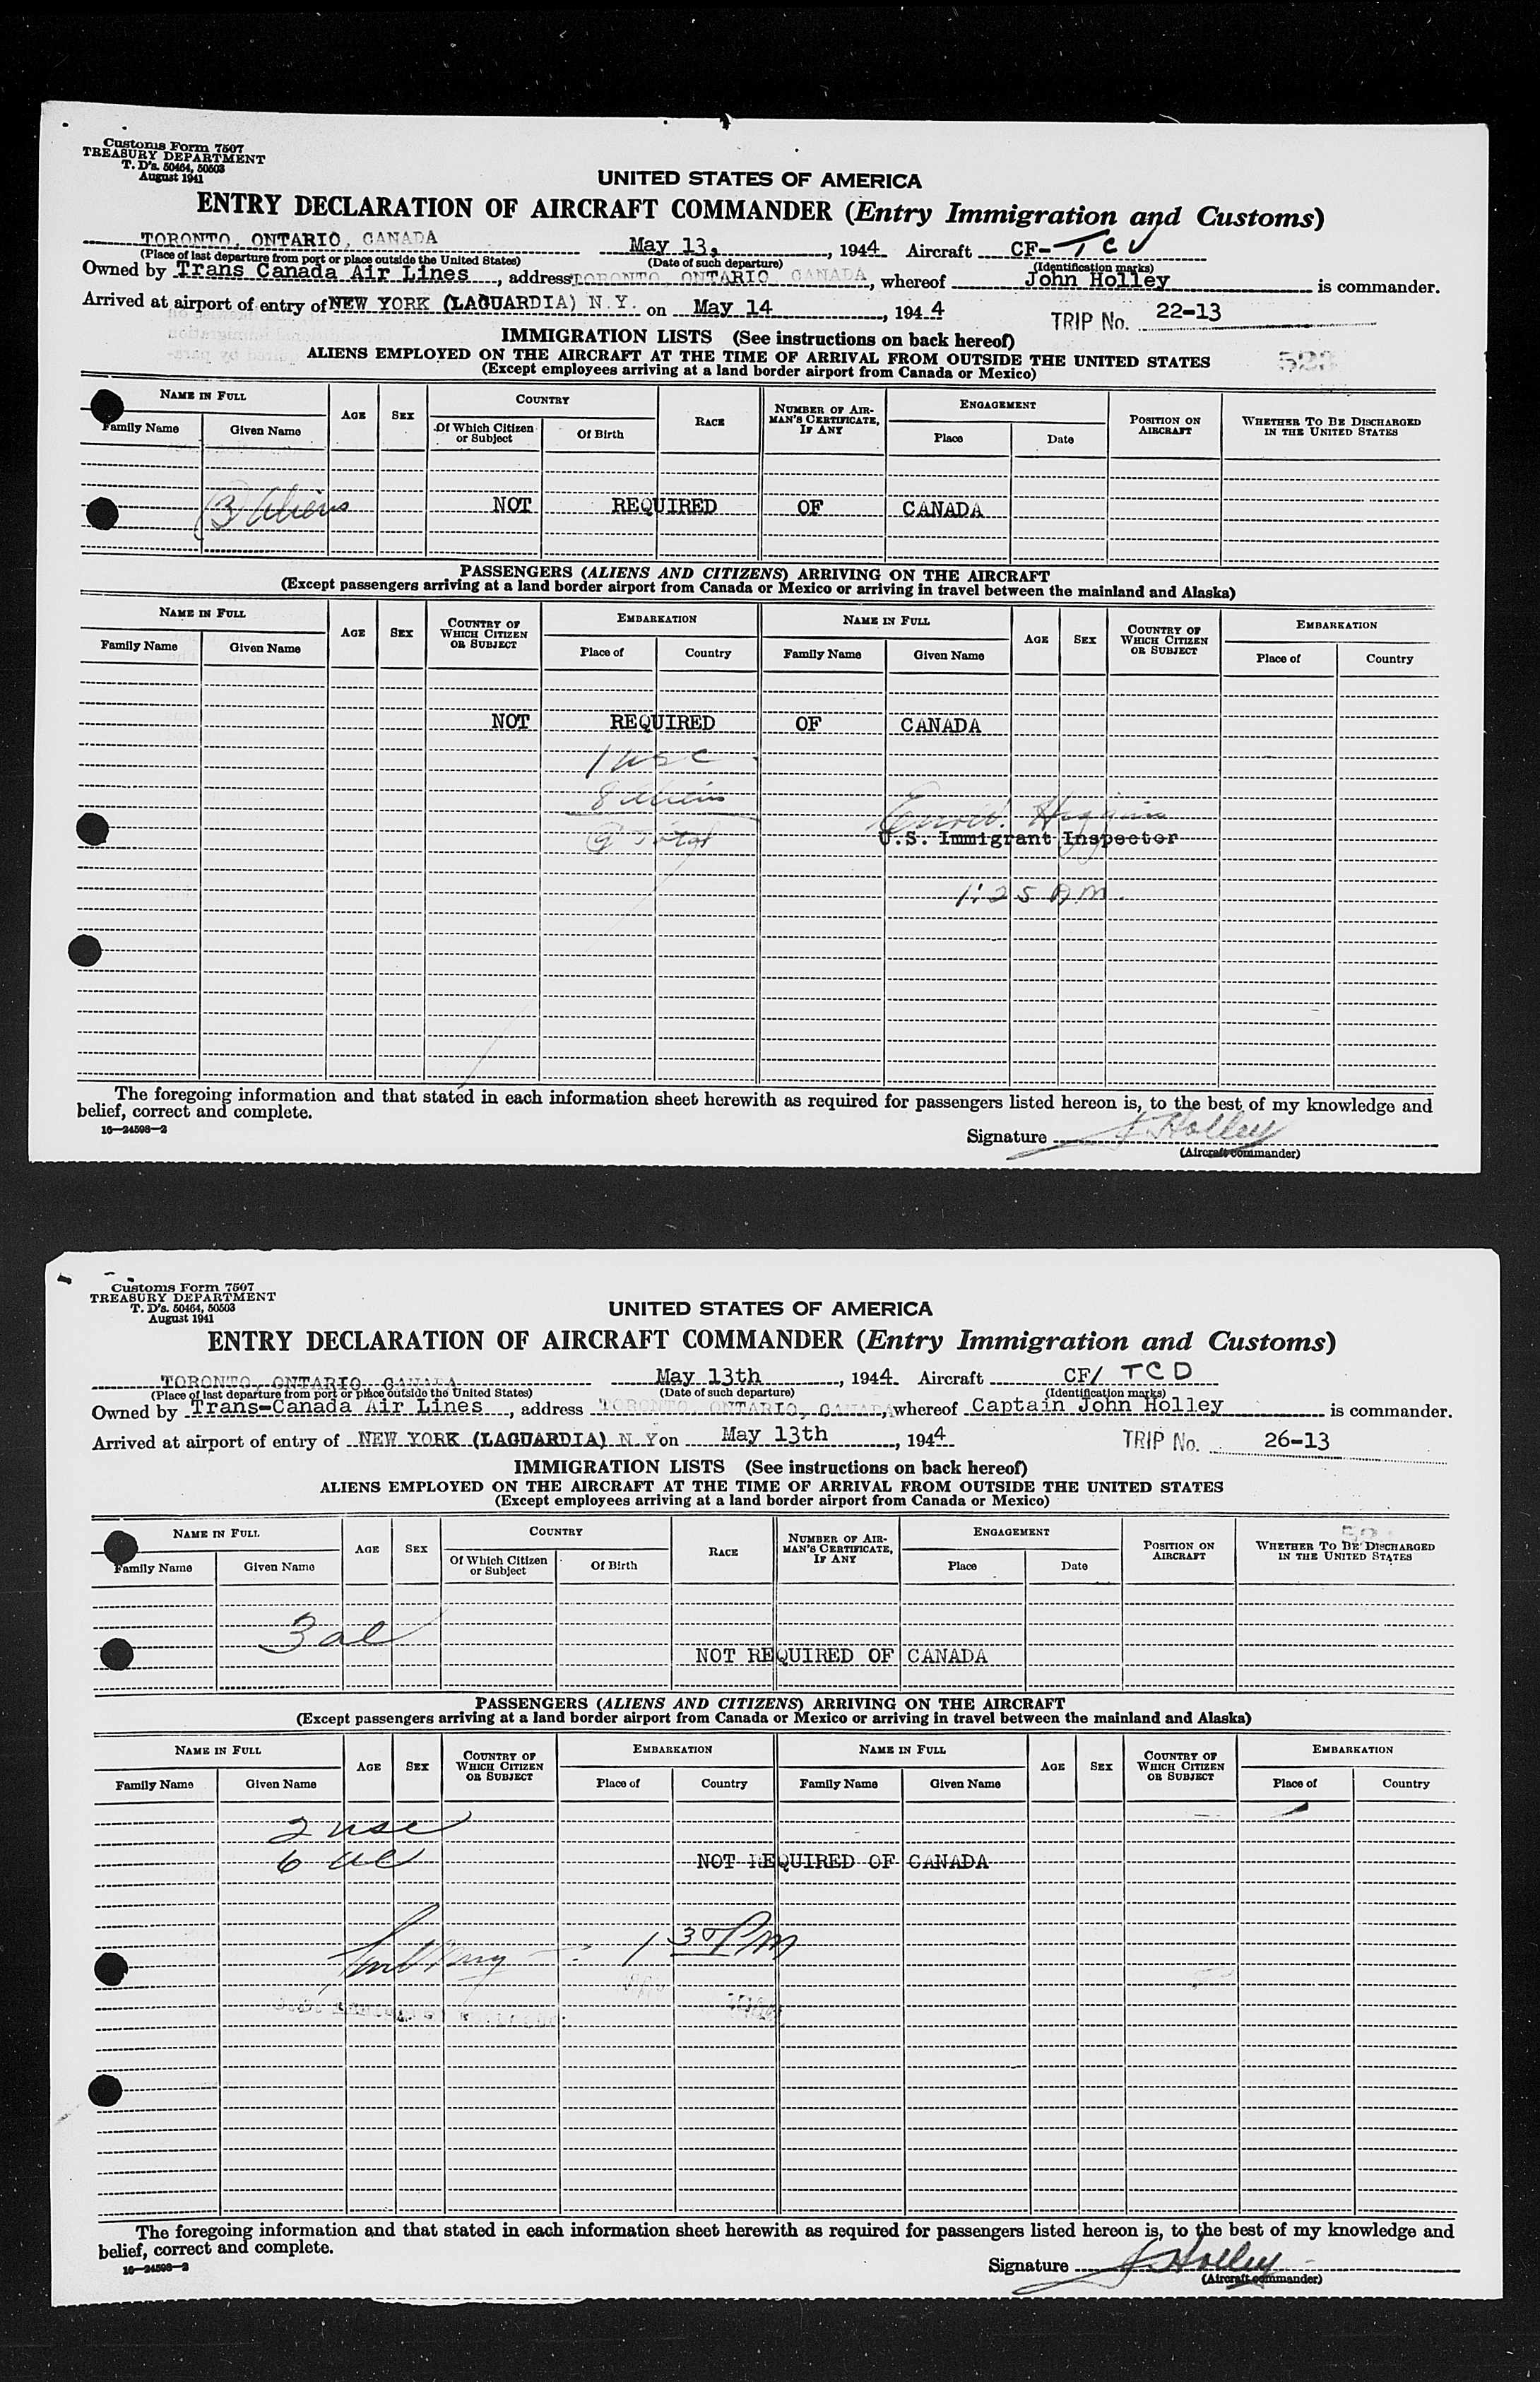 Customs Form 7507
TREASURY DEPARTMENT
T. D's. 50464, 50503
August 1941
UNITED STATES OF AMERICA
ENTRY DECLARATION OF AIRCRAFT COMMANDER (Entry Immigration and Customs)
TORONTO, ONTARIO, CANADA May 13, 1944 Aircraft CF-TCV
(Place of last departure from port or place outside the United States) (Date of such departure) (Identification marks)
Owned by Trans Canada Air Lines, address TORONTO, ONTARIO CANADA, whereof John Holley is commander.
Arrived at airport of entry of NEW YORK (LAGUARDIA) N.Y. on May 14, 1944 TRIP No. 22-13
IMMIGRATION LISTS (See instructions on back hereof)
ALIENS EMPLOYED ON THE AIRCRAFT AT THE TIME OF ARRIVAL FROM OUTSIDE THE UNITED STATES
(Except employees arriving at a land border airport from Canada or Mexico)
NAME IN FULL AGE SEX COUNTRY RACE NUMBER OF AIRMAN'S CERTIFICATE, IF ANY ENGAGEMENT POSITION ON AIRCRAFT WHETHER TO BE DISCHARGED IN THE UNITED STATES
Family Name Given Name Of Which Citizen or Subject Of Birth Place Date
(3) Aliens NOT REQUIRED OF CANADA
PASSENGERS (ALIENS AND CITIZENS) ARRIVING ON THE AIRCRAFT
(Except passengers arriving at a land border airport from Canada or Mexico or arriving in travel between the mainland and Alaska)
NAME IN FULL AGE SEX COUNTRY OF WHICH CITIZEN OR SUBJECT EMBARKATION NAME IN FULL AGE SEX COUNTRY OF WHICH CITIZEN OR SUBJECT EMBARKATION
Family Name Given Name Place of Country Family Name Given Name Place of Country
NOT REQUIRED OF CANADA
1 usc
8 aliens
9 Total Higgins
U.S. Immigrant Inspector
1:25 AM.
The foregoing information and that stated in each information sheet herewith as required for passengers listed hereon is, to the best of my knowledge and
belief, correct and complete.
16-24598-2
Signature J Holley
(Aircraft commander)
Customs Form 7507
TREASURY DEPARTMENT
T. D's. 50464, 50503
August 1941
UNITED STATES OF AMERICA
ENTRY DECLARATION OF AIRCRAFT COMMANDER (Entry Immigration and Customs)
TORONTO, ONTARIO CANADA May 13th, 1944 Aircraft CF/ TCD
(Place of last departure from port or place outside the United States) (Date of such departure) (Identification marks)
Owned by Trans-Canada Air Lines, address TORONTO, ONTARIO, CANADA, whereof Captain John Holley is commander.
Arrived at airport of entry of NEW YORK (LAGUARDIA) N.Y on May 13th, 1944 TRIP No. 26-13
IMMIGRATION LISTS (See instructions on back hereof)
ALIENS EMPLOYED ON THE AIRCRAFT AT THE TIME OF ARRIVAL FROM OUTSIDE THE UNITED STATES
(Except employees arriving at a land border airport from Canada or Mexico)
NAME IN FULL AGE SEX COUNTRY RACE NUMBER OF AIRMAN'S CERTIFICATE, IF ANY ENGAGEMENT POSITION ON AIRCRAFT WHETHER TO BE DISCHARGED IN THE UNITED STATES
Family Name Given Name Of Which Citizen or Subject Of Birth Place Date
3 al
NOT REQUIRED OF CANADA
PASSENGERS (ALIENS AND CITIZENS) ARRIVING ON THE AIRCRAFT
(Except passengers arriving at a land border airport from Canada or Mexico or arriving in travel between the mainland and Alaska)
NAME IN FULL AGE SEX COUNTRY OF WHICH CITIZEN OR SUBJECT EMBARKATION NAME IN FULL AGE SEX COUNTRY OF WHICH CITIZEN OR SUBJECT EMBARKATION
Family Name Given Name Place of Country Family Name Given Name Place of Country
2 usc
6 al NOT REQUIRED OF CANADA
1 30 PM
The foregoing information and that stated in each information sheet herewith as required for passengers listed hereon is, to the best of my knowledge and
belief, correct and complete.
16-24598-2
Signature J Holley
(Aircraft commander)